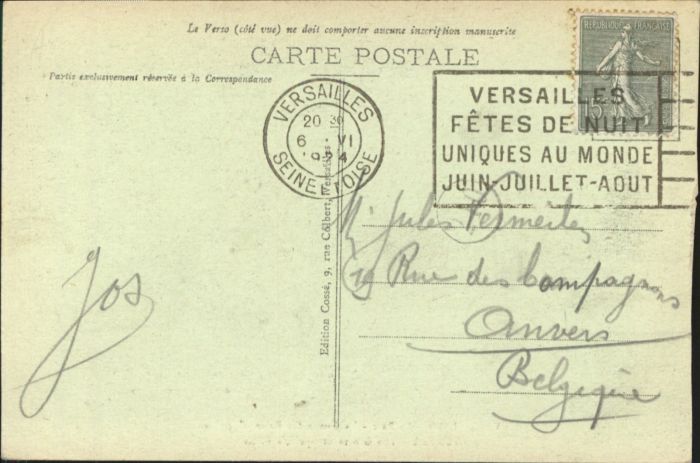 Le Verso (côté vue) ne doit comporter aucune inscription manuscrite
CARTE POSTALE
Partie exclusivement réservée à la Correspondance
REPUBLIQUE FRANÇAISE
15
VERSAILLES
20 30
6 - VI
1924
SEINE-ET-OISE
VERSAILLES
FÊTES DE NUIT
UNIQUES AU MONDE
JUIN-JUILLET-AOUT
Edition Cossé, 9, rue Colbert, Versailles
Jos
Mr Jules
19 Rue des Compagnons
Anvers
Belgique